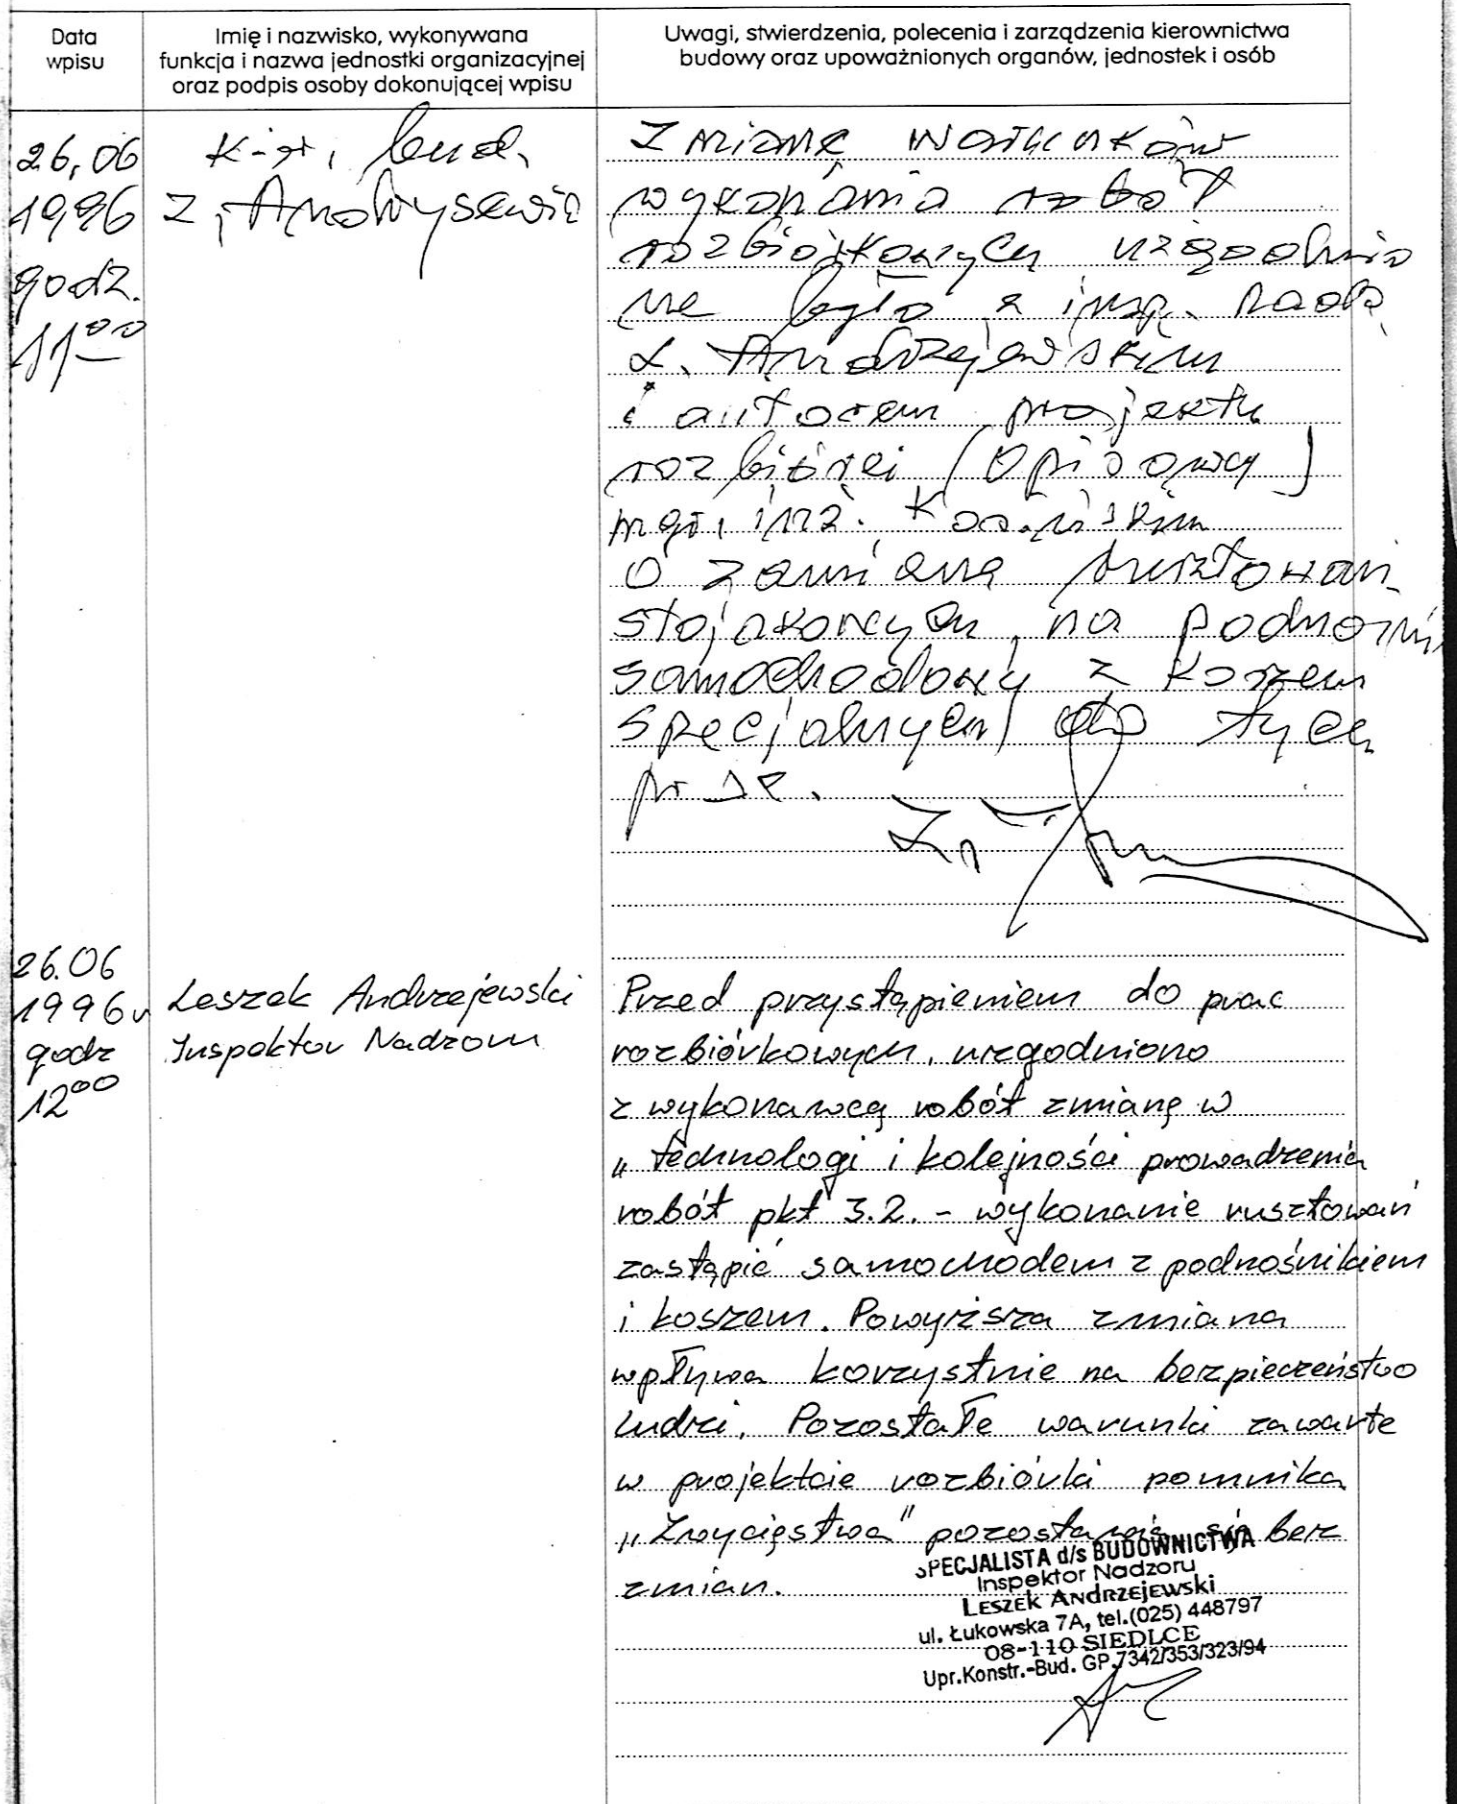 Data
wpisu
Imię i nazwisko, wykonywana
funkcja i nazwa jednostki organizacyjnej
oraz podpis osoby dokonującej wpisu
Uwagi, stwierdzenia, polecenia i zarządzenia kierownictwa
budowy oraz upoważnionych organów, jednostek i osób
26.06
1996
godz.
11⁰⁰
K-er. bud.
Z.
Zmianę warunków
wykonania robót
rozbiórkowych uzgodnio
ne było z insp. nadz.
L. Andrzejewskim
i autorem projektu
rozbiórki (opisowy)
mgr. inż.
o zamianę rusztowań
stojakowych na podnośnik
samochodowy z koszem
specjalnym do tych
prac.
26.06
1996r
godz
12⁰⁰
Leszek Andrzejewski
Inspektor Nadzoru
Przed przystąpieniem do prac
rozbiórkowych, uzgodniono
z wykonawcą robót zmianę w
„technologi i kolejności prowadzenia
robót pkt 3.2. - wykonanie rusztowań
zastąpić samochodem z podnośnikiem
i koszem. Powyższa zmiana
wpływa korzystnie na bezpieczeństwo
ludzi. Pozostałe warunki zawarte
w projektcie rozbiórki pomnika
„Zwycięstwa" pozostają się bez
zmian.
SPECJALISTA d/s BUDOWNICTWA
Inspektor Nadzoru
LESZEK ANDRZEJEWSKI
ul. Łukowska 7A, tel.(025) 448797
08-110 SIEDLCE
Upr.Konstr.-Bud. GP.7342/353/323/94